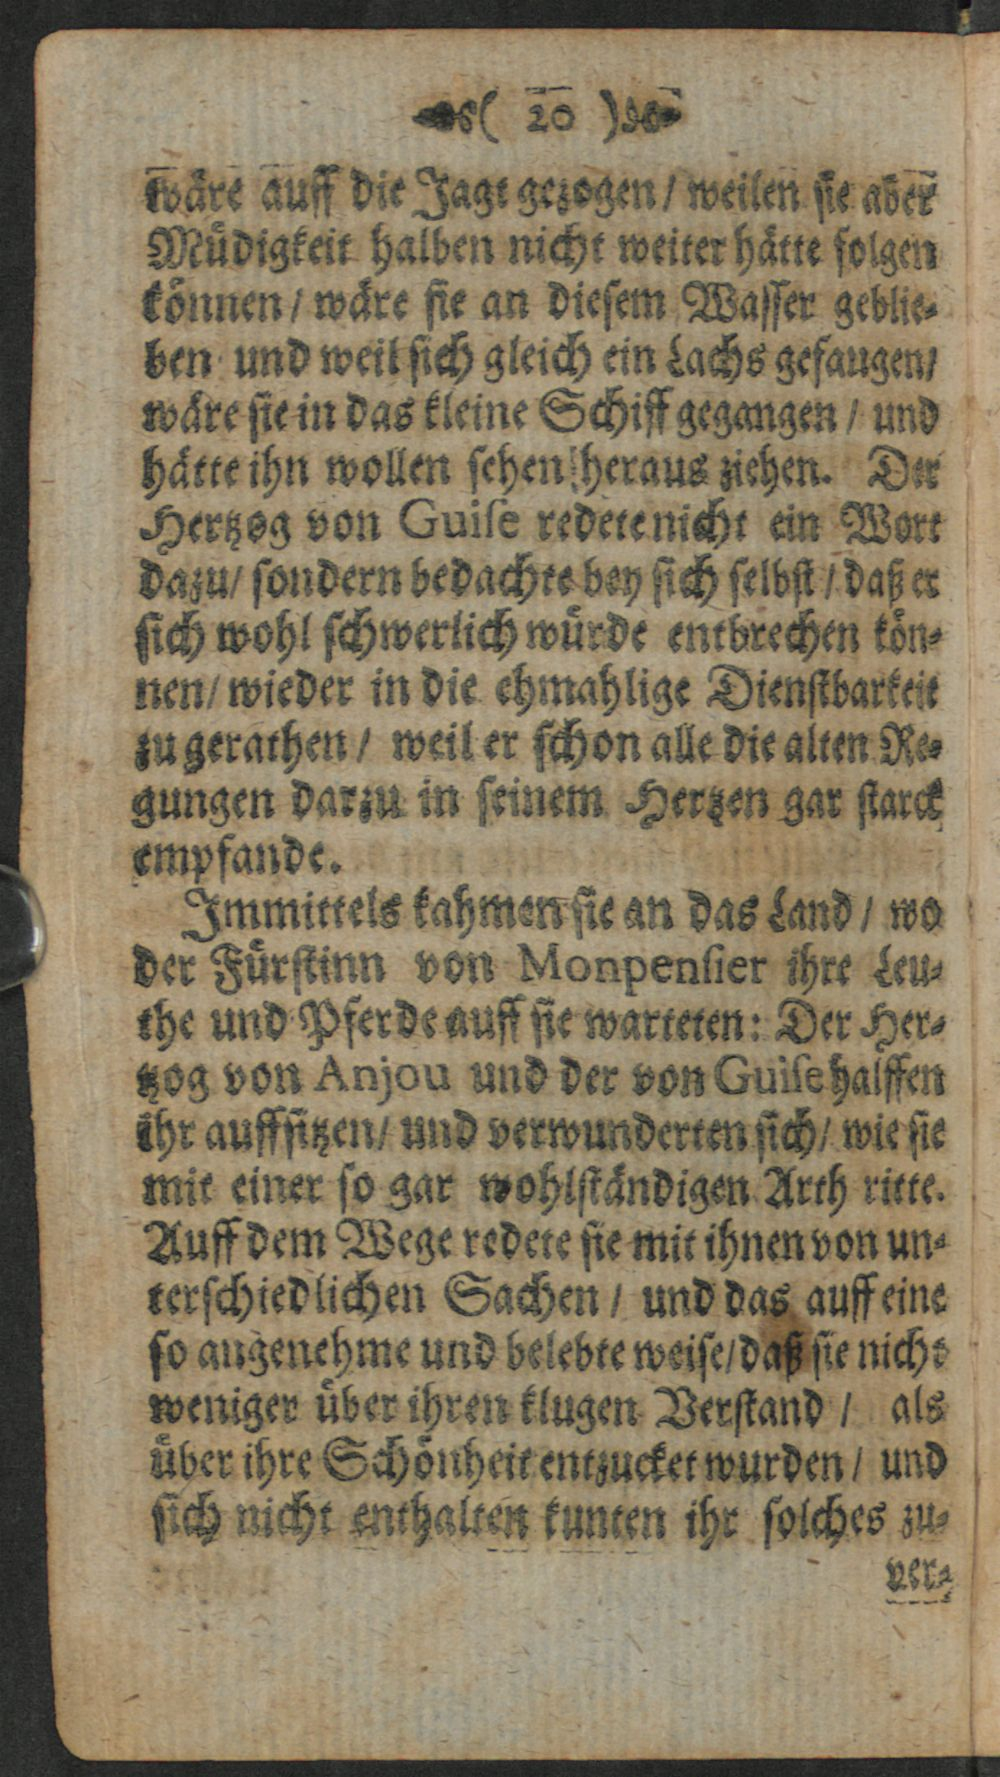 ( 20 )
wäre auff die Jagt gezogen / weilen sie aber
Müdigkeit halben nicht weiter hätte folgen
können / wäre sie an diesem Wasser geblie-
ben und weil sich gleich ein Lachs gefangen /
wäre sie in das kleine Schiff gegangen / und
hätte ihn wollen sehen heraus ziehen. Der
Hertzog von Guise redete nicht ein Wort
dazu / sondern bedachte bey sich selbst / daß er
sich wohl schwerlich würde entbrechen kön-
nen / wieder in die ehmahlige Dienstbarkeit
zu gerathen / weil er schon alle die alten Re-
gungen darzu in seinem Hertzen gar starck
empfande.
Immittels kahmen sie an das Land / wo
der Fürstinn von Monpensier ihre Leu-
the und Pferde auff sie warteten: Der Her-
tzog von Anjou und der von Guise halffen
ihr auffsitzen / und verwunderten sich / wie sie
mit einer so gar wohlständigen Arth ritte.
Auff dem Wege redete sie mit ihnen von un-
terschiedlichen Sachen / und das auff eine
so angenehme und belebte weise / daß sie nicht
weniger über ihren klugen Verstand / als
über ihre Schönheit entzucket wurden / und
sich nicht enthalten kunten ihr solches zu-
ver-